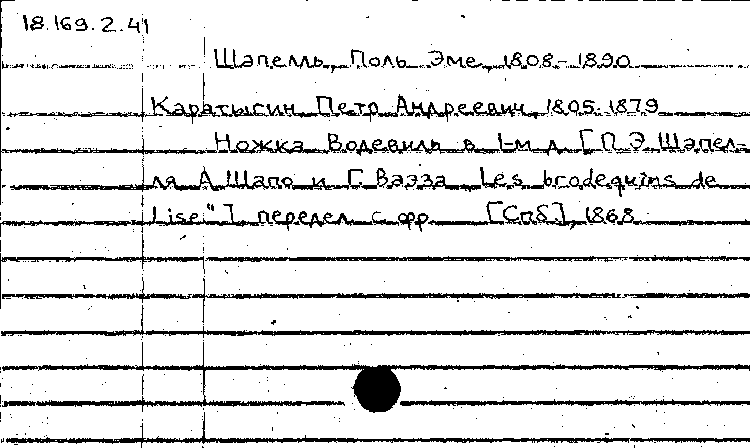 18.169.2.41
Шапелль, Поль Эме, 1808-1890
Каратыгин Петр Андреевич, 1805-1879
Ножка Водевиль в 1-м д. [П. Э. Шапел-
ля А. Шапо и Г. Ваэза „Les brodequins de
Lise"], передел. с фр. [Спб.], 1868